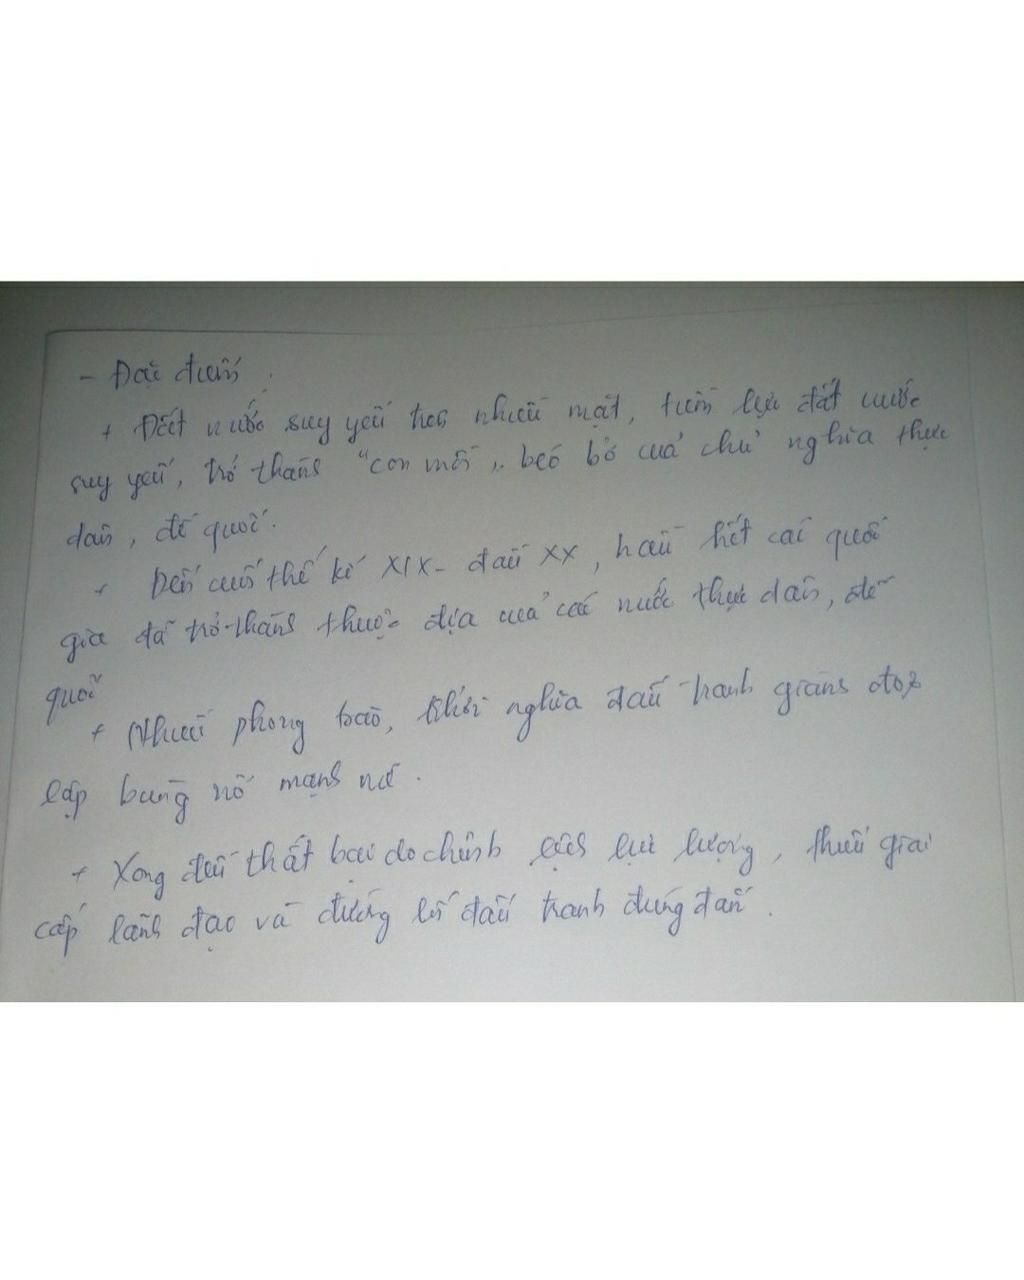 - Đặc điểm.
+ Đất nước suy yếu trên nhiều mặt, tiềm lực đất nước
suy yếu, trở thành "con mồi" béo bở của chủ nghĩa thực
dân, đế quốc.
+ Đến cuối thế kỉ XIX - đầu XX, hầu hết các quốc
gia đã trở thành thuộc địa của các nước thực dân, đế
quốc
+ Nhiều phong trào, khởi nghĩa đấu tranh giành độc
lập bùng nổ mạnh mẽ.
+ Xong đều thất bại do chênh lệch lực lượng, thiếu giai
cấp lãnh đạo và đường lối đấu tranh đúng đắn.